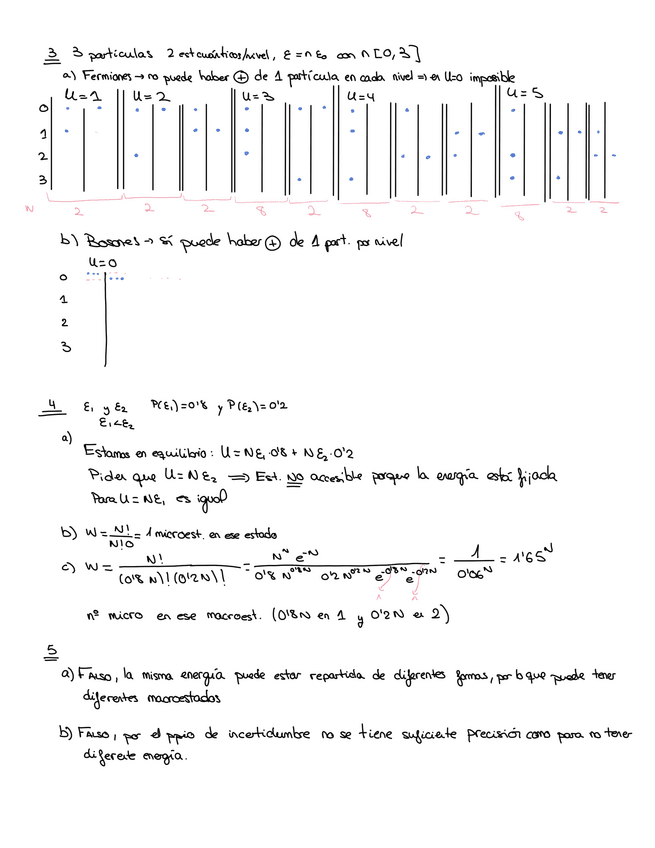 3 3 partículas 2 est cuánticos/nivel, ε = n ε₀ con n [0,3]
a) Fermiones → no puede haber ⊕ de 1 partícula en cada nivel ⇒ en U=0 imposible
U=1 U=2 U=3 U=4 U=5
0
1
2
3
W 2 2 2 8 2 8 2 2 8 2 2
b) Bosones → sí puede haber ⊕ de 1 part. por nivel
U=0
0
1
2
3
4 ε₁ y ε₂ P(ε₁)=0'8 y P(ε₂)=0'2
ε₁<ε₂
a)
Estamos en equilibrio: U = Nε₁·0'8 + Nε₂·0'2
Piden que U = Nε₂ ⇒ Est. NO accesible porque la energía está fijada
Para U = Nε₁ es igual
b) W = N!/N!0 = 1 microest. en ese estado
c) W = N!/(0'8 N)!(0'2N)! = N^N e^-N / 0'8 N^0'8N 0'2 N^0'2N e^-0'8N e^-0'2N = 1/0'06^N = 1'65^N
nº micro en ese macroest. (0'8N en 1 y 0'2N en 2)
5
a) FALSO, la misma energía puede estar repartida de diferentes formas, por lo que puede tener
diferentes macroestados
b) FALSO, por el ppio de incertidumbre no se tiene suficiente precisión como para no tener
diferente energía.